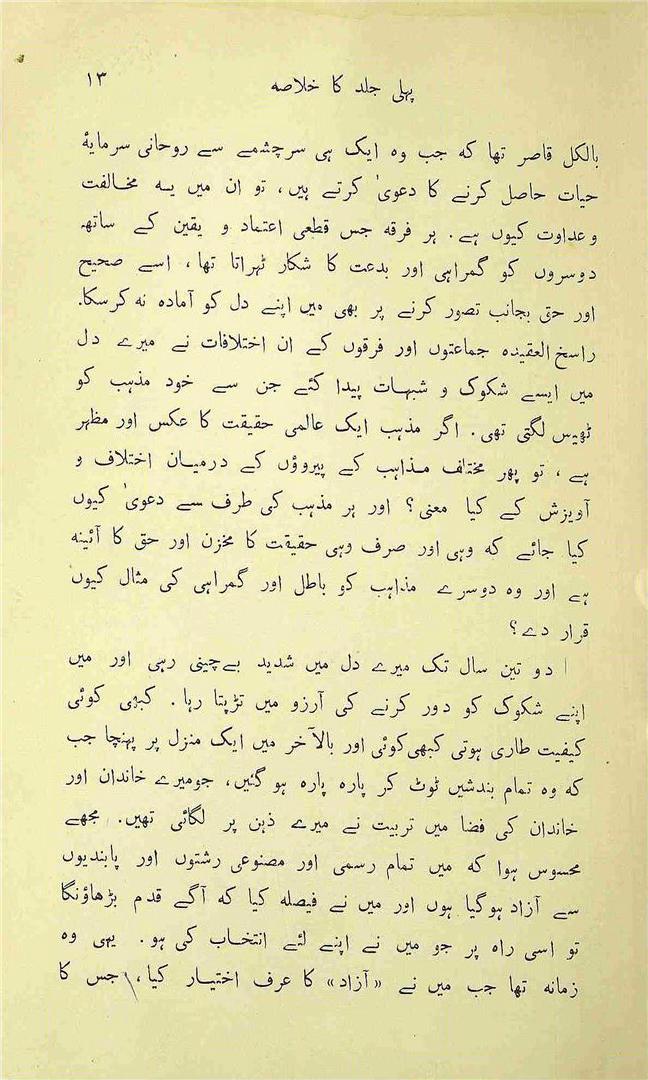 پہلی جلد کا خلاصہ ۱۳
بالکل قاصر تھا کہ جب وہ ایک ہی سرچشمے سے روحانی سرمایۂ
حیات حاصل کرنے کا دعویٰ کرتے ہیں، تو ان میں یہ مخالفت
و عداوت کیوں ہے۔ ہر فرقہ جس قطعی اعتماد و یقین کے ساتھ
دوسروں کو گمراہی اور بدعت کا شکار ٹھراتا تھا، اسے صحیح
اور حق بجانب تصور کرنے پر بھی میں اپنے دل کو آمادہ نہ کرسکا۔
راسخ العقیدہ جماعتوں اور فرقوں کے ان اختلافات نے میرے دل
میں ایسے شکوک و شبہات پیدا کئے جن سے خود مذہب کو
ٹھیس لگتی تھی۔ اگر مذہب ایک عالمی حقیقت کا عکس اور مظہر
ہے، تو پھر مختلف مذاہب کے پیروؤں کے درمیان اختلاف و
آویزش کے کیا معنی؟ اور ہر مذہب کی طرف سے دعویٰ کیوں
کیا جائے کہ وہی اور صرف وہی حقیقت کا مخزن اور حق کا آئینہ
ہے اور وہ دوسرے مذاہب کو باطل اور گمراہی کی مثال کیوں
قرار دے؟
دو تین سال تک میرے دل میں شدید بےچینی رہی اور میں
اپنے شکوک کو دور کرنے کی آرزو میں تڑپتا رہا۔ کبھی کوئی
کیفیت طاری ہوتی کبھی کوئی اور بالآخر میں ایک منزل پر پہنچا جب
کہ وہ تمام بندشیں ٹوٹ کر پارہ پارہ ہو گئیں، جو میرے خاندان اور
خاندان کی فضا میں تربیت نے میرے ذہن پر لگائی تھیں۔ مجھے
محسوس ہوا کہ میں تمام رسمی اور مصنوعی رشتوں اور پابندیوں
سے آزاد ہوگیا ہوں اور میں نے فیصلہ کیا کہ آگے قدم بڑھاؤنگا
تو اسی راہ پر جو میں نے اپنے لئے انتخاب کی ہو۔ یہی وہ
زمانہ تھا جب میں نے «آزاد» کا عرف اختیار کیا، جس کا